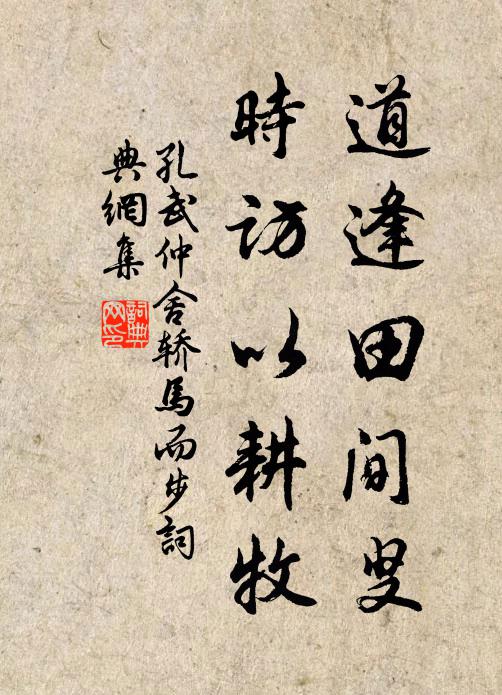 道逢田间叟
時访以耕牧
孔武仲舍轿馬而步詞
典網集
詞典网印